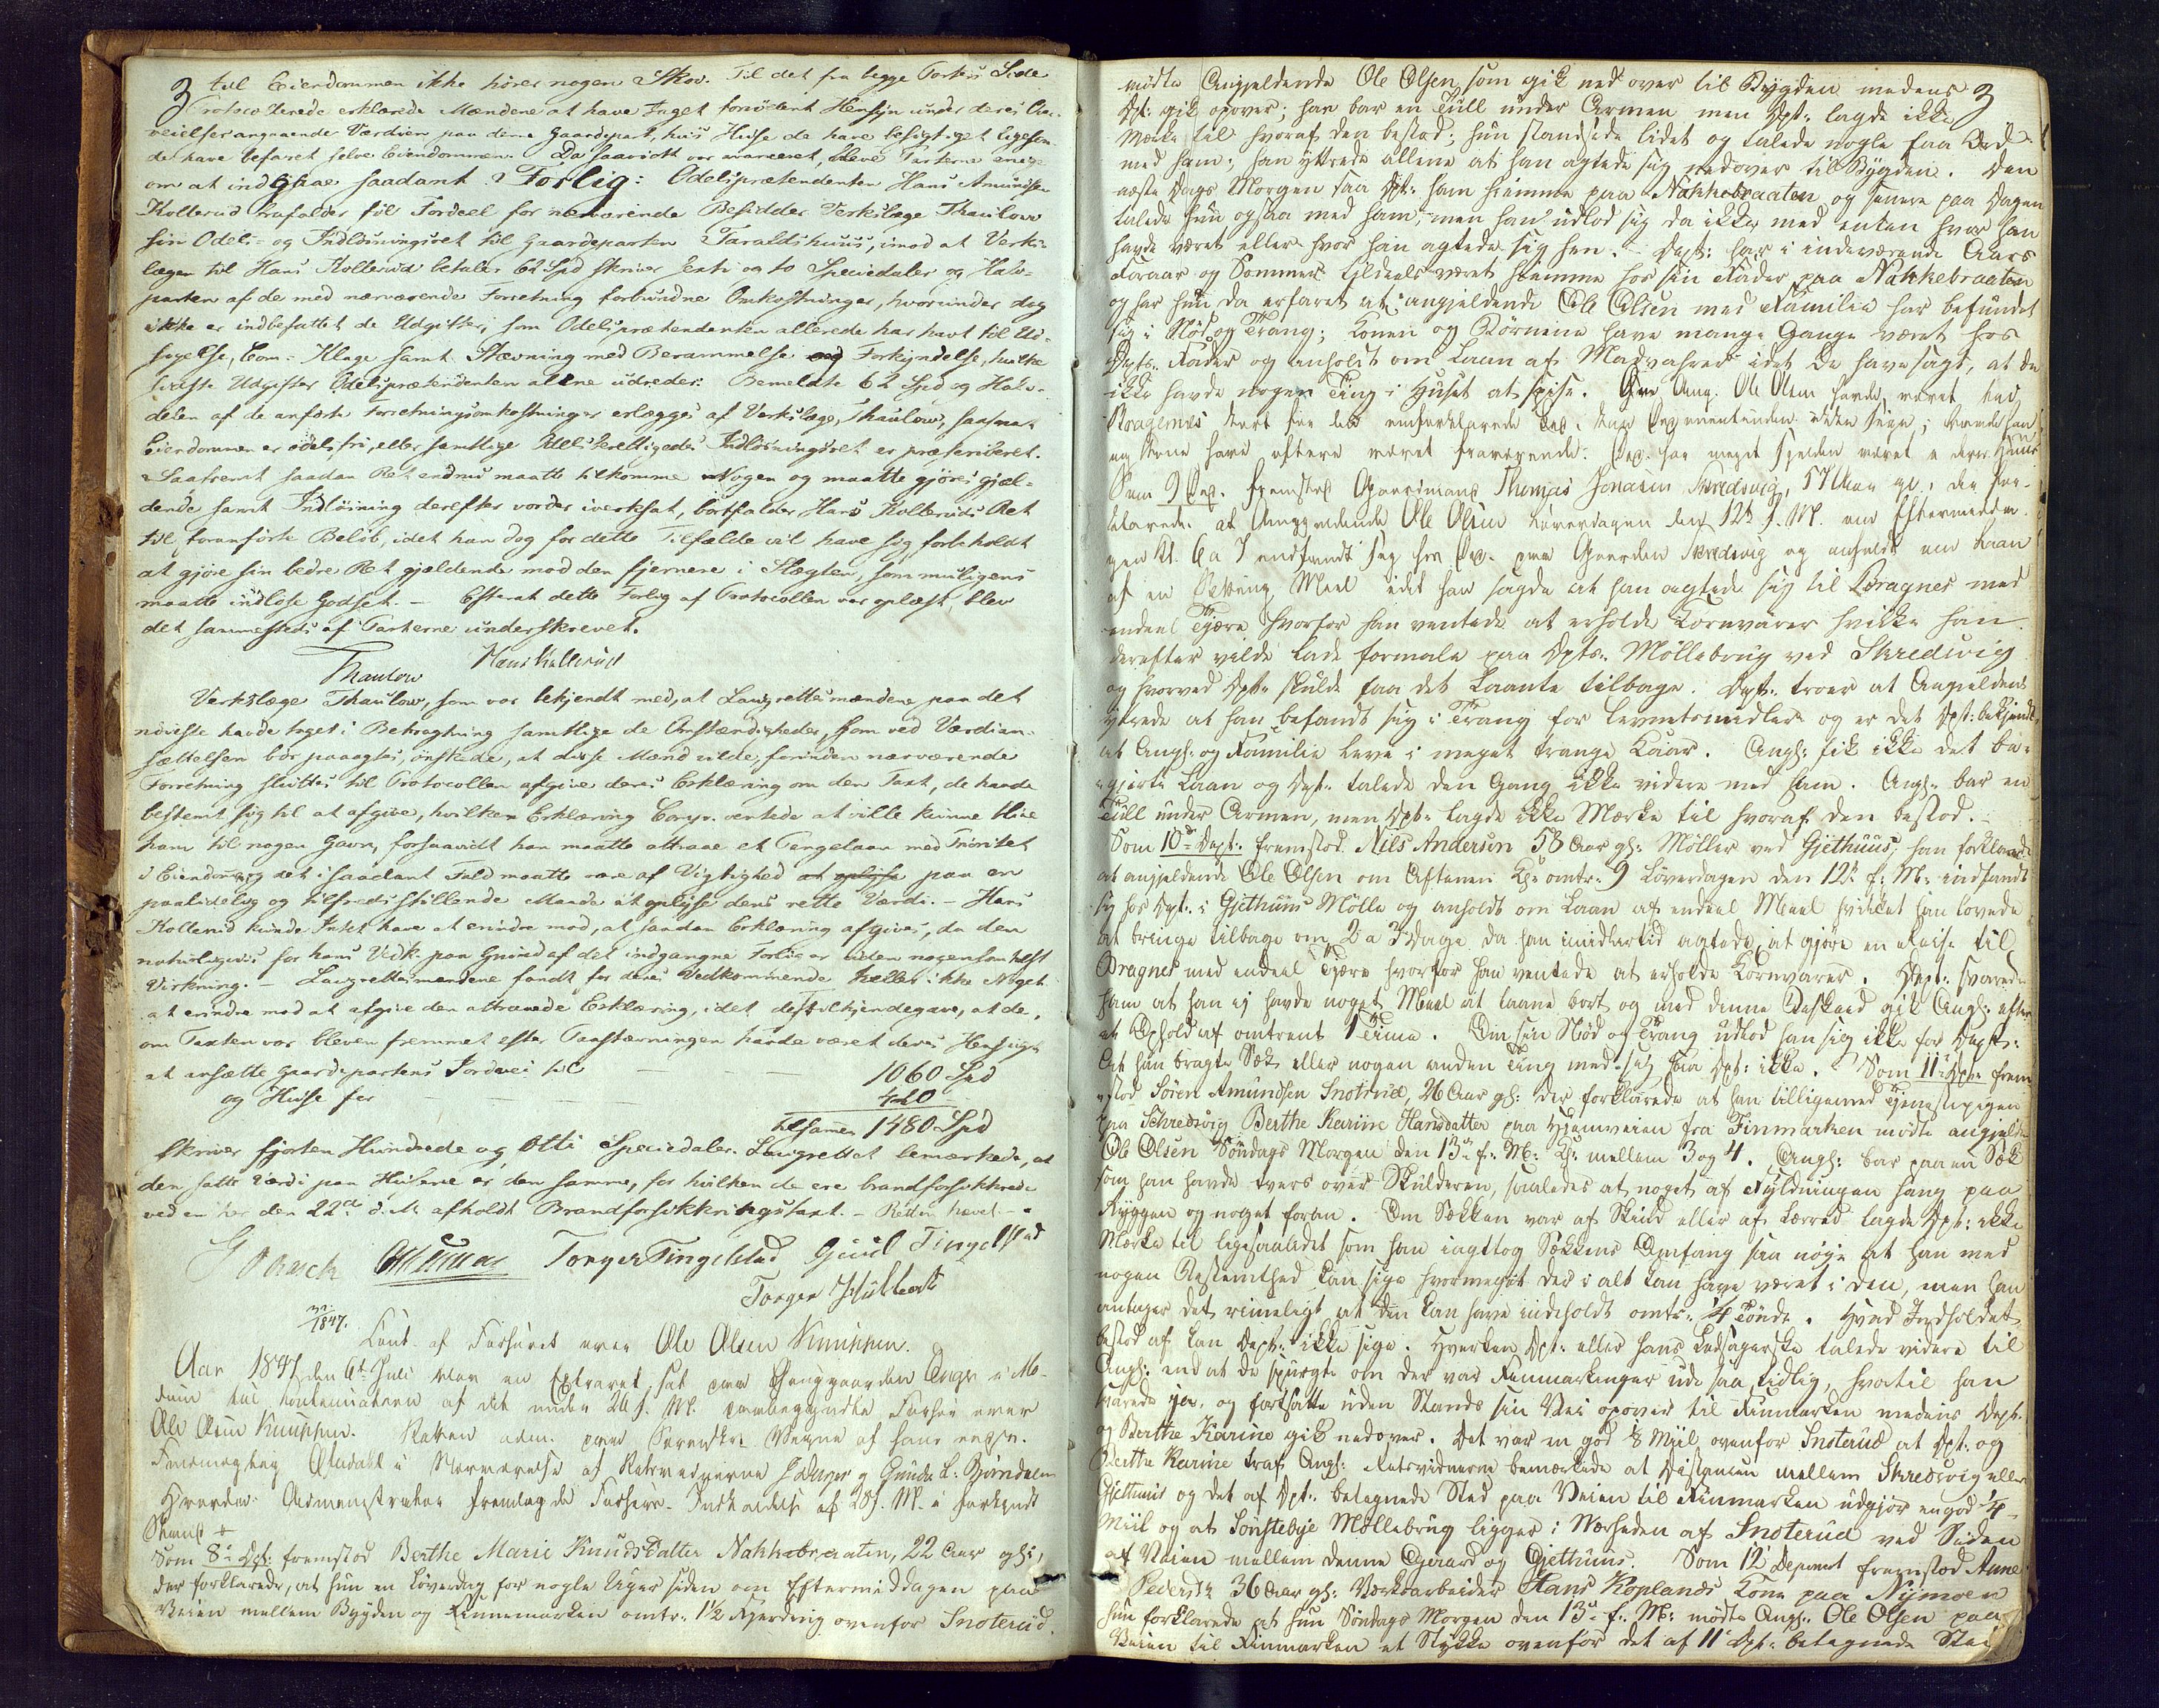 3 til Eiendommen ikke hører nogen Skov. Til det fra begge Parters Side
Protocollerede erklærede Mændene at have Intet fornödent Hensyn under deres Over-
veielser angaaende Værdien paa denne Gaardepart, hvis Huse de have besigtiget ligesom
de have befaret selve Eiendommen. Da saavidt var avanceret, bleve Parterne enige
om at indgaae saadant Forlig: Odelsprætendenten Hans Amundsen
Kollerud frafalder til Fordeel for nærværende Besidder Verkslæge Thaulow
sin Odels- og Indlösningsret til Gaardeparten Taraldshuus, imod at Verks-
lægen til Hans Kollerud betaler 62 Spd skriver Sexti og to Speciedaler og Halv-
parten af de med nærværende Forretning forbundne Omkostninger, hvorunder dog
ikke er indbefattet de Udgifter, som Odelsprætendenten allerede har havt til Ud-
sigelse, Com: Klage samt Stævning med Berammelse og Forkyndelse, hvilke
sidste Udgifter Odelsprætendenten allene udreder: Bemeldte 62 Spd og Halv-
delen af de anförte Forretningsomkostninger erlægges af Verkslæge Thaulow, saasnart
Eiendommen er odelsfri, eller samtlige Odelsberettigedes Indlösningsret er præscriberet.
Saafremt saadan Ret endnu maatte tilkomme Nogen og maatte gjöres gjæl-
dende samt Indlösning derefter vorder iverksat, bortfalder Hans Kolleruds Ret
til foranförte Belöb, idet han dog for dette Tilfælde vil have sig forbeholdt
at gjöre sin bedre Ret gjældende mod den fjernere i Slægten, som muligens
maatte indlöse Godset. — Efterat dette Forlig af Protocollen var oplæst, blev
det sammesteds af Parterne underskrevet.
Thaulow Hans Kollerud
Verkslæge Thaulow, som var bekjendt med, at Laugrettesmændene paa det
nöieste havde taget i Betragtning samtlige de Omstændigheder, som ved Værdian-
sættelsen bör paaagtes, önskede, at disse Mænd vilde, forinden nærværende
Forretning sluttes til Protocollen afgive deres Erklæring om den Taxt, de havde
bestemt sig til at afgive, hvilken Erklæring Comp. ventede at ville kunne blive
ham til nogen Gavn, forsaavidt han maatte attraae et Pengelaan med Prioritet
i Eiendommen og det i saadant Fald maatte være af Vigtighed at oplyse paa en
paalidelig og tilfredsstillende Maade at oplyse dens rette Værdi. — Hans
Kollerud kunde Intet have at erindre mod, at saadan Erklæring afgives, da den
naturligviis for hans Vedk: paa Grund af det indgangne Forlig er uden nogensomhelst
Virkning. — Laugrettesmændene fandt for deres Vedkommende heller ikke Noget
at erindre mod at afgive den attraaede Erklæring, idet de tilkjendegave, at de,
om Taxten var bleven fremmet efter Paastævningen havde været deres Hensigt
at ansætte Gaardepartens Jordvei til — — 1060 Spd
og Huse for — — — 420 —
tilsammen 1480 Spd
skriver fjorten Hundrede og Otti Speciedaler. Laugrettet bemærkede, at
den satte Værdi paa Husene er den samme, for hvilken de ere brandforsikkrede
ved en her den 22de d. M. afholdt Brandforsikkringstaxt. — Retten hævet. —
Torger Tingelstad Gjuul Tingelstad
Torger
1847.
Cont. af Forhöret over Ole Olsen Knuppen.
Aar 1847 den 6te Juli blev en Extraret sat paa Thinggaarden i Mo-
dum til Continuation af det under 26 f. M. paabegyndte Forhör over
Ole Olsen Knuppen. Retten adm. paa Sorenskr. Vegne af hans edsv.
Fuldmægtig i Nærværelse af Retsvidnerne og Gunder L: Björndalen
Hvorda: Administrator fremlagde Forhörs-Indkaldelse af 28 f. M. i forkyndt
Stand +
Som 8de Dpt: fremstod Berthe Marie Knudsdatter Nakkebraaten, 22 Aar gl:,
der forklarede, at hun en Löverdag for nogle Uger siden om Eftermiddagen paa
Veien mellem Bygden og Finnemarken omtr: 1½ Fjerding ovenfor Snoterud.
mödte Angjeldende Ole Olsen, som gik nedover til Bygden medens 3
Dpt: gik opover; han bar en Tull under Armen men Dpt: lagde ikke
Mærke til hvoraf den bestod; hun standsede lidet og talede nogle faa Ord
med ham; han yttrede allene at han agtede sig nedover til Bygden. Den
næste Dags Morgen saa Dpt: ham hjemme paa Nakkebraaten og senere paa Dagen
talede hun ogsaa med ham, men han udlod sig da ikke med enten hvor han
havde været eller hvor han agtede sig hen. — Dpt: har i indeværende Aars
Foraar og Sommer tildeels været hjemme hos sin Fader paa Nakkebraaten
og har hun da erfaret at angjeldende Ole Olsen med Familie har befundet
sig i Nöd og Trang; Konen og Börnene have mange Gange været hos
Dpts. Fader og anholdt om Laan af Madvahrer idet De have sagt, at de
ikke havde nogen Ting i Huset at spise. Om Ang. Ole Olsen havde været ved
Bragernes
og Börn have oftere været fraværende. Dep. har meget sjelden været i deres Huus
Som 9 Dep. fremstod Gaardmand Thomas Jonasen Skredsvig, 57 Aar gl., der for-
klarede: at Angjeldende Ole Olsen Löverdagen den 12te f. M. om Eftermidda-
gen Kl. 6 a 7 indfandt sig hos Dep. paa Gaarden Skredsvig og anholdt om Laan
af en Meel idet han sagde at han agtede sig til Bragnes med
endeel Tjære hvorfor han ventede at erholde Kornvarer hvilke han
derefter vilde lade formale paa Dpts. Möllebrug ved Skredsvig
og hvorved Dpt: skulde faa det Laante tilbage. Dpt: troer at Angjeldende
yttrede at han befandt sig i Trang for Levnetsmidler og er det Dpt: bekjendt
at Angl: og Familie leve i meget trange Kaar. Angl: fik ikke det be-
gjærte Laan og Dpt: talede den Gang ikke videre med ham. Angl: bar en
Tull under Armen, men Dpt: lagde ikke Mærke til hvoraf den bestod. —
Som 10de Dept: fremstod Nils Andersen 58 Aar gl: Möller ved Gjethuus; han forklarede
at angjeldende Ole Olsen om Aftenen Kl: omtr: 9 Löverdagen den 12te f: M: indfandt
sig hos Dpt: i Gjethuus Mölle og anholdt om Laan af endeel Meel hvilket han lovede
at bringe tilbage om 2 a 3 Dage, da han imidlertid agtede at gjöre en Reise til
Bragnes med endeel Tjære hvorfor han ventede at erholde Kornvarer. Dept: svarede
ham at han ej havde noget Meel at laane bort og med denne Beskeed gik Angl: efter
et Ophold af omtrent 1 Time. Om sin Nöd og Trang udlod han sig ikke for Dept:
At han bragte Sæk eller nogen anden Ting med sig saa Dpt: ikke. Som 11te Dpt: frem-
stod Sören Amundsen Snoterud, 26 Aar gl: der forklarede at han tilligemed Tjenestepigen
paa Schredsvig Berthe Karine Hansdatter paa Hjemveien fra Finmarken mödte angjeldende
Ole Olsen Söndags Morgen den 13de f: M: Kl: mellem 3 og 4. Angl: bar paa en Sæk
som han havde tvers over Skulderen, saaledes at noget af Fyldningen hang paa
Ryggen og noget foran. Om Sækken var af Skind eller af Lærred lagde Dpt: ikke
Mærke til ligesaalidet som han iagttog Sækkens Omfang saa nöje at han med
nogen Bestemthed kan sige hvormeget der i alt kan have været i den, men han
antager det rimeligt at den kan have indeholdt omtr: ¼ Tönde. Hvad Indholdet
bestod af kan Dept: ikke sige. Hverken Dpt: eller hans Ledsagerske talede videre til
Angl: end at de spurgte om der var Finmarkinger ude saa tidlig, hvortil han
svarede jo, og fortsatte uden Stands sin Vei opover til Finmarken medens Dept:
og Berthe Karine gik nedover. Det var en god ⅛ Miil ovenfor Snoterud at Dpt: og
Berthe Karine traf Angl: Retsvidnerne bemærkede at Distancen mellem Skredsvig eller
Gjethuus og det af Dpt: betegnede Sted paa Veien til Finmarken udgjör en god ¼
Miil og at Sönsteby Möllebrug ligger i Nærheden af Snoterud ved Siden
af Veien mellem denne Gaard og Gjethuus. Som 12te Deponent fremstod Anne
Pedersdr 36 Aar gl: Værksarbeider Hans Koplands Kone paa Nymoen
hun forklarede at hun Söndags Morgen den 13de f: M: mödte Angl: Ole Olsen paa
Veien til Finmarken et Stykke ovenfor det af 11te Dpt: betegnede Sted